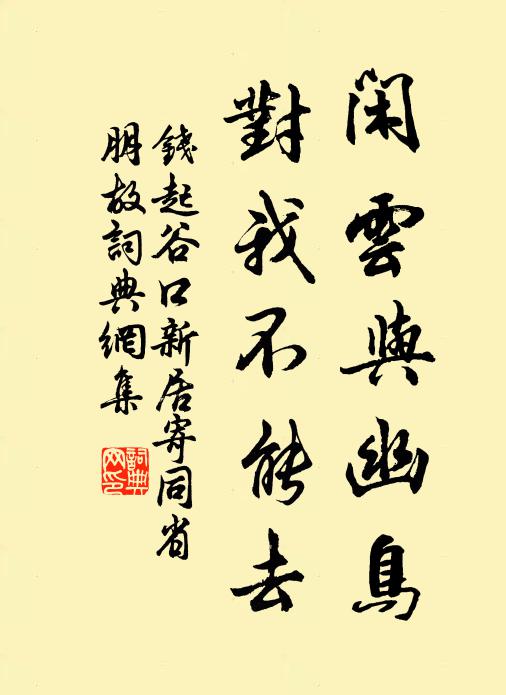 閑雲與幽鳥
對我不能去
錢起谷口新居寄同省
朋故詞典網集
詞典
网印